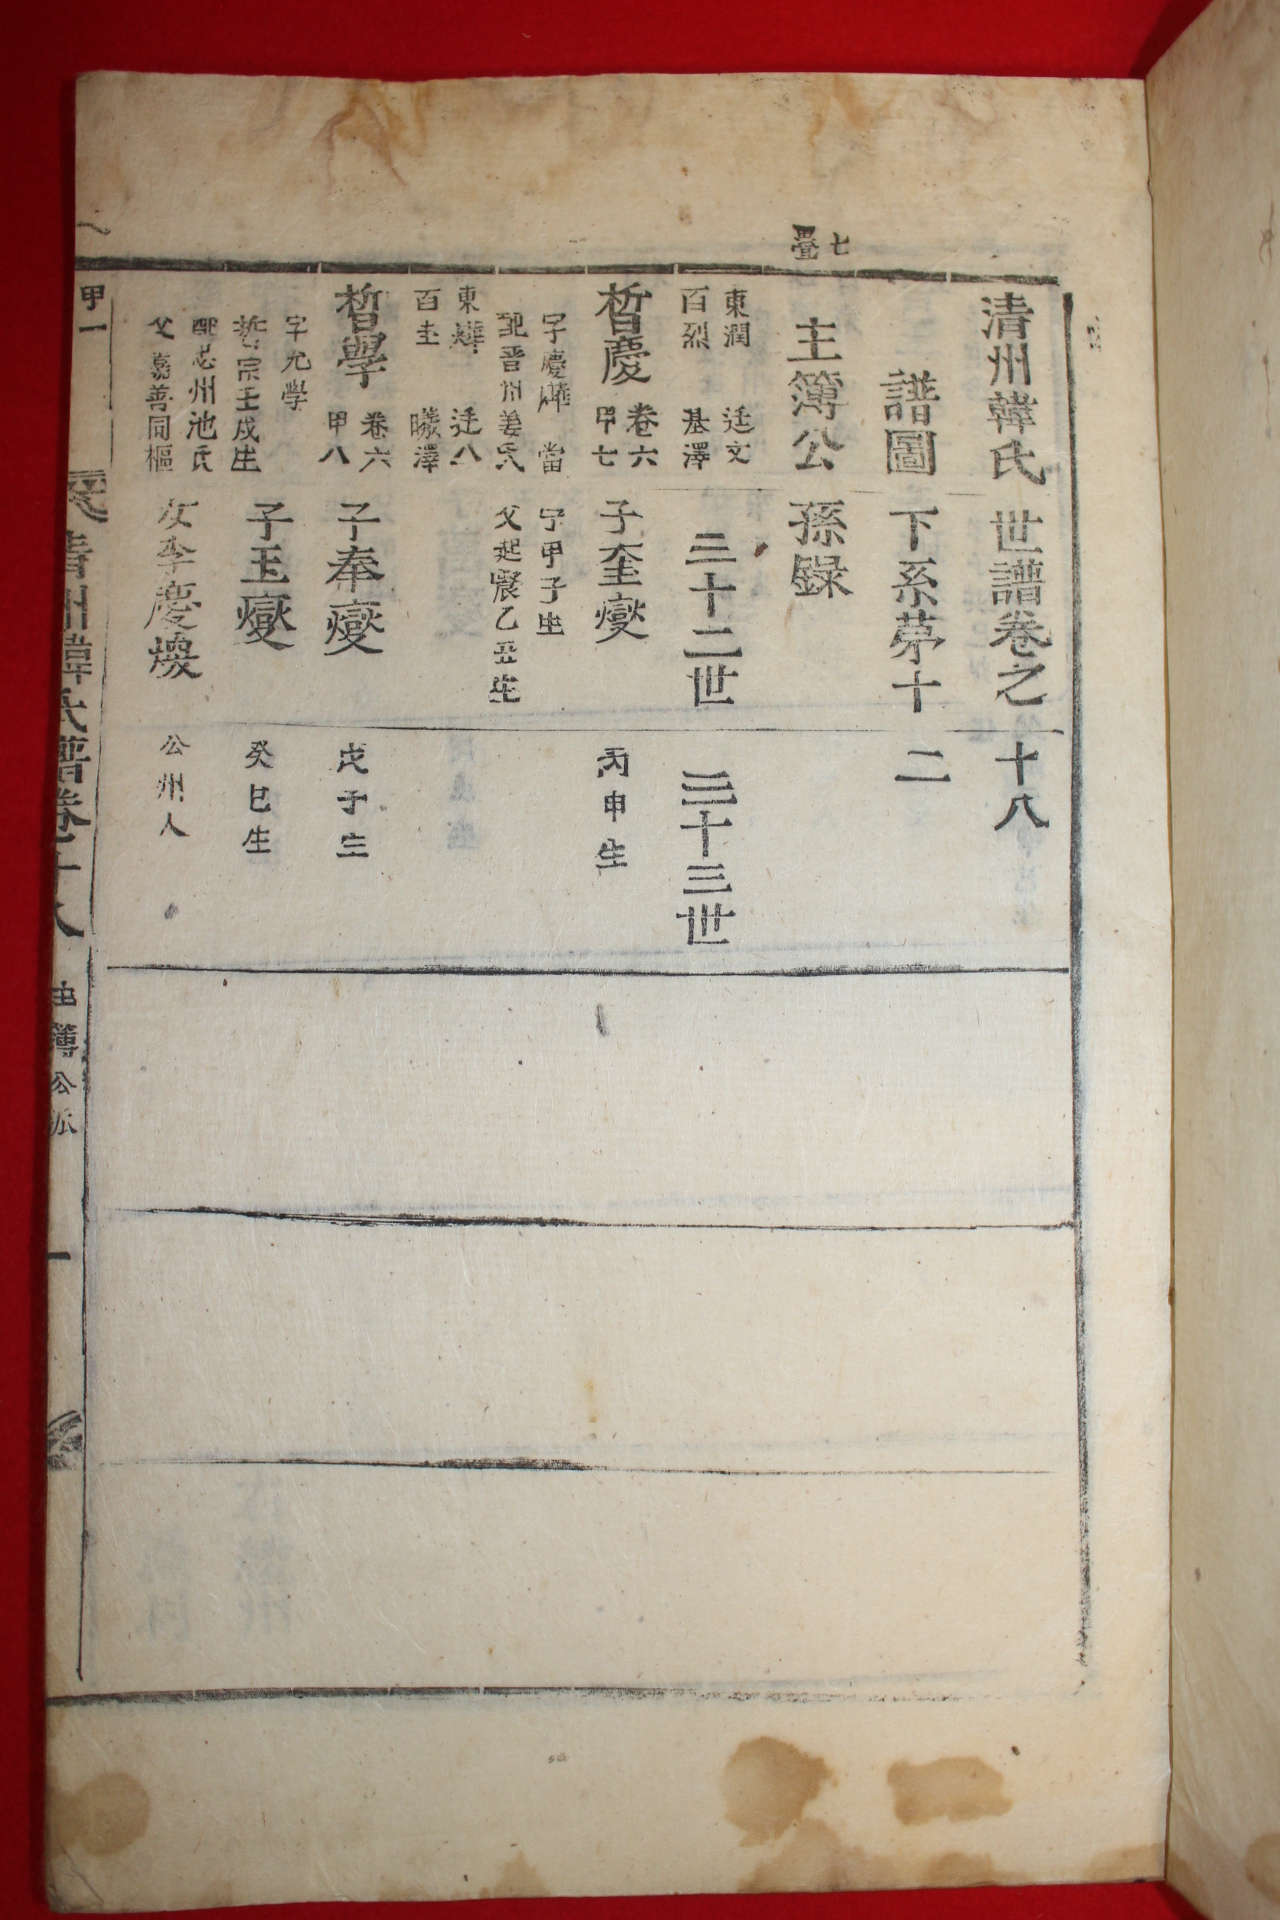 七
疊
清州韓氏世譜卷之十八
譜圖下系苐十二
主簿公孫錄
東潤 廷文
百烈 基澤
三十二世
三十三世
晳慶
卷六
甲七
子奎燮
丙申生
字慶燁 當
配晋州姜氏
字甲子生
父起賢乙丑生
東燁 廷八
百圭 曦澤
晳學
卷六
甲八
子奉燮
戊子生
字允學
哲宗壬戌生
子玉燮
癸巳生
配忠州池氏
父嘉善同樞
女李慶煥
公州人
甲一
清州韓氏譜卷十八
主簿公派
一